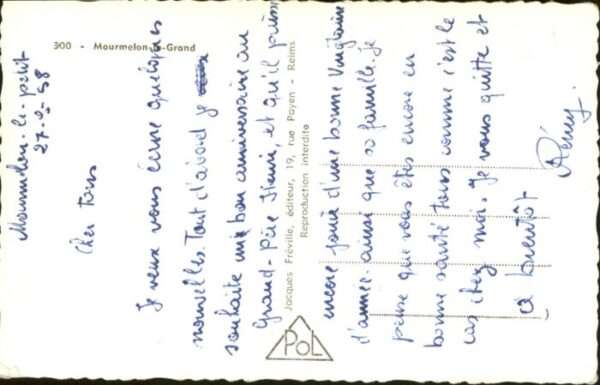 300 - Mourmelon-le-Grand
Mourmelon-le-petit
27-2-58
Cher Tous
Je veux vous écrire quelques
nouvelles. Tout d'abord je
souhaite un bon anniversaire au
Grand-Père Henri, et qu'il puisse
encore jouir d'une bonne vingtaine
d'année. ainsi que sa famille. Je
pense que vous êtes encore en
bonne santé tous comme c'est le
cas chez moi. Je vous quitte et
à bientôt
Rémy.
Jacques Fréville, éditeur, 19, rue Payen - Reims
Reproduction interdite
POL